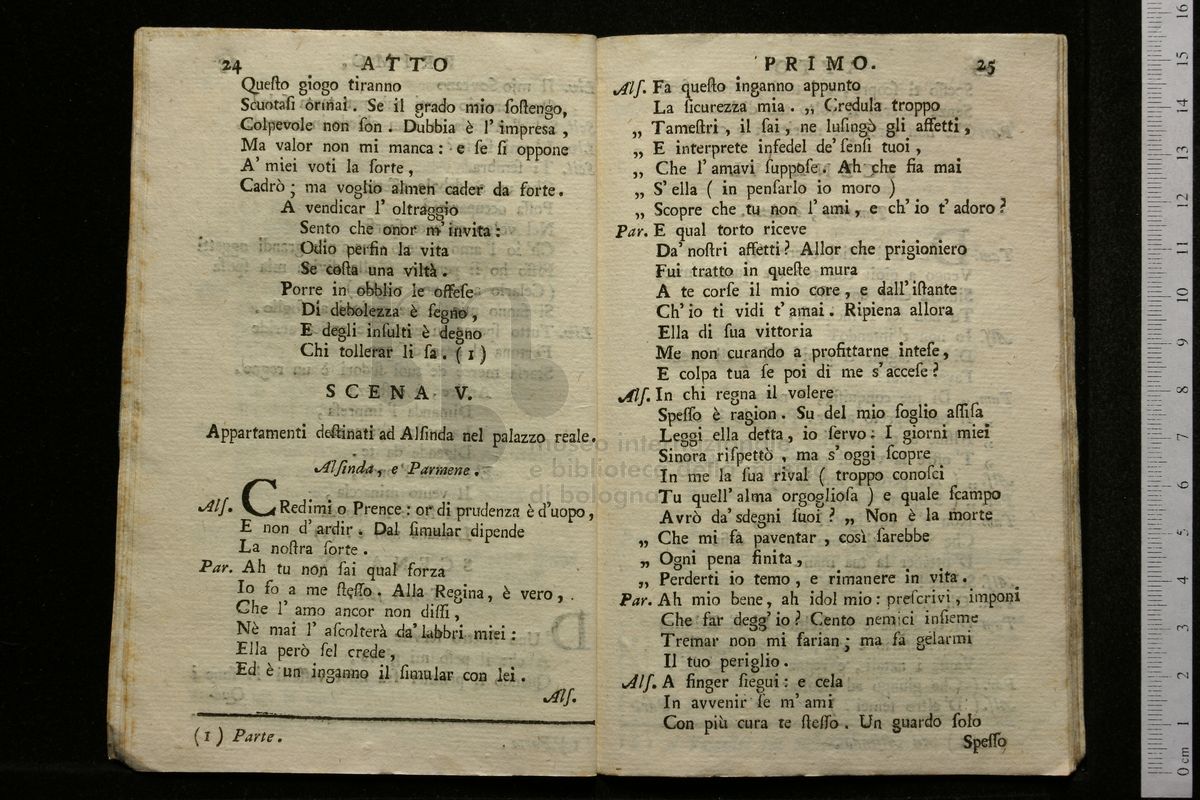 24 ATTO
Queſto giogo tiranno
Scuotaſi òrmai. Se il grado mio ſoſtengo,
Colpevole non ſon. Dubbia è l' impresa,
Ma valor non mi manca: e ſe ſi oppone
A' miei voti la ſorte,
Cadrò; ma voglio almen cader da forte.
A vendicar l' oltraggio
Sento che onor m' invita:
Odio perfin la vita
Se coſta una viltà.
Porre in obblio le offeſe
Di debolezza è ſegno,
E degli inſulti è degno
Chi tollerar li ſa. (1)
SCENA V.
Appartamenti deſtinati ad Alſinda nel palazzo reale.
Alſinda, e Parmene.
Alſ. CRedimi o Prence: or di prudenza è d'uopo,
E non d' ardir. Dal ſimular dipende
La noſtra ſorte.
Par. Ah tu non ſai qual forza
Io fo a me ſteſſo. Alla Regina, è vero,
Che l' amo ancor non diſſi,
Nè mai l' aſcolterà da' labbri miei:
Ella però ſel crede,
Ed è un inganno il ſimular con lei.
Alſ.
(1) Parte.
PRIMO. 25
Alſ. Fa queſto inganno appunto
La ſicurezza mia. „ Credula troppo
„ Tameſtri, il ſai, ne luſingò gli affetti,
„ E interprete infedel de' ſenſi tuoi,
„ Che l' amavi ſuppoſe. Ah che fia mai
„ S' ella ( in penſarlo io moro )
„ Scopre che tu non l' ami, e ch' io t' adoro?
Par. E qual torto riceve
Da' noſtri affetti? Allor che prigioniero
Fui tratto in queſte mura
A te corſe il mio core, e dall' iſtante
Ch' io ti vidi t' amai. Ripiena allora
Ella di ſua vittoria
Me non curando a profittarne inteſe,
E colpa tua ſe poi di me s' acceſe?
Alſ. In chi regna il volere
Speſſo è ragion. Su del mio ſoglio aſſiſa
Leggi ella detta, io ſervo: I giorni miei
Sinora riſpettò, ma s' oggi ſcopre
In me la ſua rival ( troppo conoſci
Tu quell' alma orgoglioſa ) e quale ſcampo
Avrò da' sdegni ſuoi? „ Non è la morte
„ Che mi fa paventar, così ſarebbe
„ Ogni pena finita,
„ Perderti io temo, e rimanere in vita.
Par. Ah mio bene, ah idol mio: preſcrivi, imponi
Che far degg' io? Cento nemici inſieme
Tremar non mi farian; ma fa gelarmi
Il tuo periglio.
Alſ. A finger ſiegui: e cela
In avvenir ſe m' ami
Con più cura te ſteſſo. Un guardo ſolo
Speſſo
museo internazionale
e biblioteca della musica
di bologna